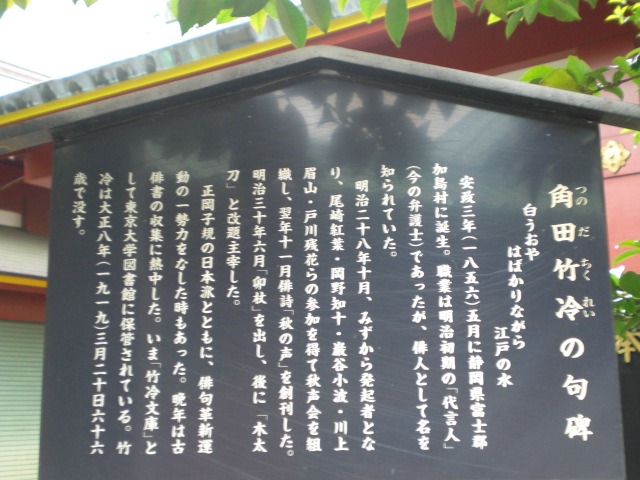 角田竹冷の句碑
つのだちくれい
白うおや
はばかりながら
江戸の水
安政三年(一八五六)五月に静岡県富士郡
加島村に誕生。職業は明治初期の「代言人」
(今の弁護士)であったが、俳人として名を
知られていた。
明治二十八年十月、みずから発起者とな
り、尾崎紅葉・岡野知十・巌谷小波・川上
眉山・戸川残花らの参加を得て秋声会を組
織し、翌年十一月俳誌「秋の声」を創刊した。
明治三十年六月「卯杖」を出し、後に「木太
刀」と改題主宰した。
正岡子規の日本派とともに、俳句革新運
動の一勢力をなした時もあった。晩年は古
俳書の収集に熱中した。いま「竹冷文庫」と
して東京大学図書館に保管されている。竹
冷は大正八年(一九一九)三月二十日六十六
歳で没す。